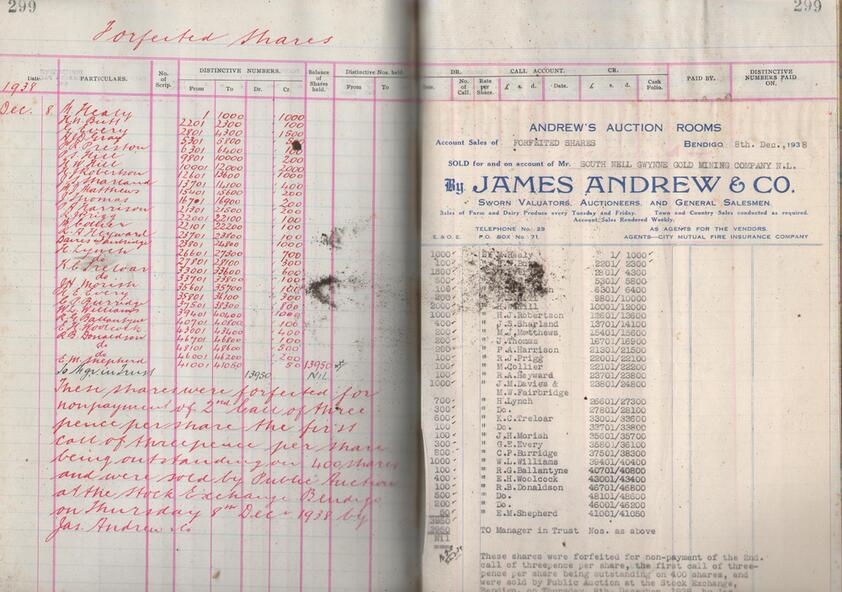 299
Forfeited Shares
Date. PARTICULARS. No. of Scrip. DISTINCTIVE NUMBERS. From To Dr. Cr. Balance of Shares held. Distinctive Nos. held. From To
1938
Dec. 8 R Healy 1 1000 1000
2201 2300 100
G Every 2801 4300 1500
5301 5800
Preston 6301 6400 100
Hill 9801 10000 200
Hill 10001 12000 2000
Robertson 12601 13600 1000
Sharland 13701 14100 400
Matthews 15401 15600 200
J Thomas 16701 16900 200
Harrison 21301 21500 200
R J Trigg 22001 22100 100
M Collier 22101 22200 100
R A Hayward 23701 23800 100
Davies & Fairbridge 23801 24800 1000
H Lynch 26601 27300 700
do 27801 28100 300
K C Treloar 33001 33600 600
do 33701 33800 100
J H Morish 35601 35700 100
G E Every 35801 36100 300
C P Burridge 37501 38300 800
W L Williams 39401 40400 1000
R G Ballantyne 40701 40800 100
E H Woolcock 43001 43400 400
R B Donaldson 46701 46800 100
do 48101 48600 500
do 46001 46200 200
E. M. Shepherd 41001 41050 50 13950
To Mgr in Trust 13950 NIL
These shares were forfeited for
nonpayment of 2nd Call of three
pence per share the first
call of threepence per share
being outstanding on 400 shares
and were sold by Public Auction
at the Stock Exchange Bendigo
on Thursday 8th Dec 1938 by
Jas. Andrew & Co
299
DR. CALL ACCOUNT. CR.
No. of Call. Rate per Share. £ s. d. Date. £ s. d. Cash Folio. PAID BY. DISTINCTIVE NUMBERS PAID ON.
ANDREW'S AUCTION ROOMS
Account Sales of FORFEITED SHARES BENDIGO 8th. Dec., 1938
SOLD for and on account of Mr. SOUTH NELL GWYNNE GOLD MINING COMPANY N.L.
By JAMES ANDREW & CO.
SWORN VALUATORS, AUCTIONEERS, AND GENERAL SALESMEN.
Sales of Farm and Dairy Produce every Tuesday and Friday. Town and Country Sales conducted as required.
Account Sales Rendered Weekly.
TELEPHONE No. 29 AS AGENTS FOR THE VENDORS.
E. & O. E. P.O. BOX No 71. AGENTS—CITY MUTUAL FIRE INSURANCE COMPANY
1000 Healy 1/ 1000
2201/ 2300
4300
5301/ 5800
6301/ 6400
9801/10000
Hill 10001/12000
1000 H.J.Robertson 12601/13600
400 J.S.Sharland 13701/14100
200 M.J.Matthews 15401/15600
200 J.Thomas 16701/16900
200 F.A.Harrison 21301/21500
100 R.J.Frigg 22001/22100
100 M.Collier 22101/22200
100 R.A.Hayward 23701/23800
1000 J.M.Davies & 23801/24800
M.W.Fairbridge
700 H.Lynch 26601/27300
300 Do. 27801/28100
600 K.C.Treloar 33001/33600
100 Do. 33701/33800
100 J.H.Morish 35601/35700
300 G.E.Every 35801/36100
800 C.P.Burridge 37501/38300
1000 W.L.Williams 39401/40400
100 R.G.Ballantyne 40701/40800
400 E.H.Woolcock 43001/43400
100 R.B.Donaldson 46701/46800
500 Do. 48101/48600
200 Do. 46001/46200
50 E.M.Shepherd 41001/41050
TO Manager in Trust Nos. as above
NIL
These shares were forfeited for non-payment of the 2nd.
call of threepence per share, the first call of three-
pence per share being outstanding on 400 shares, and
were sold by Public Auction at the Stock Exchange,
Bendigo, on Thursday, 8th. December, 1938, by Jas.